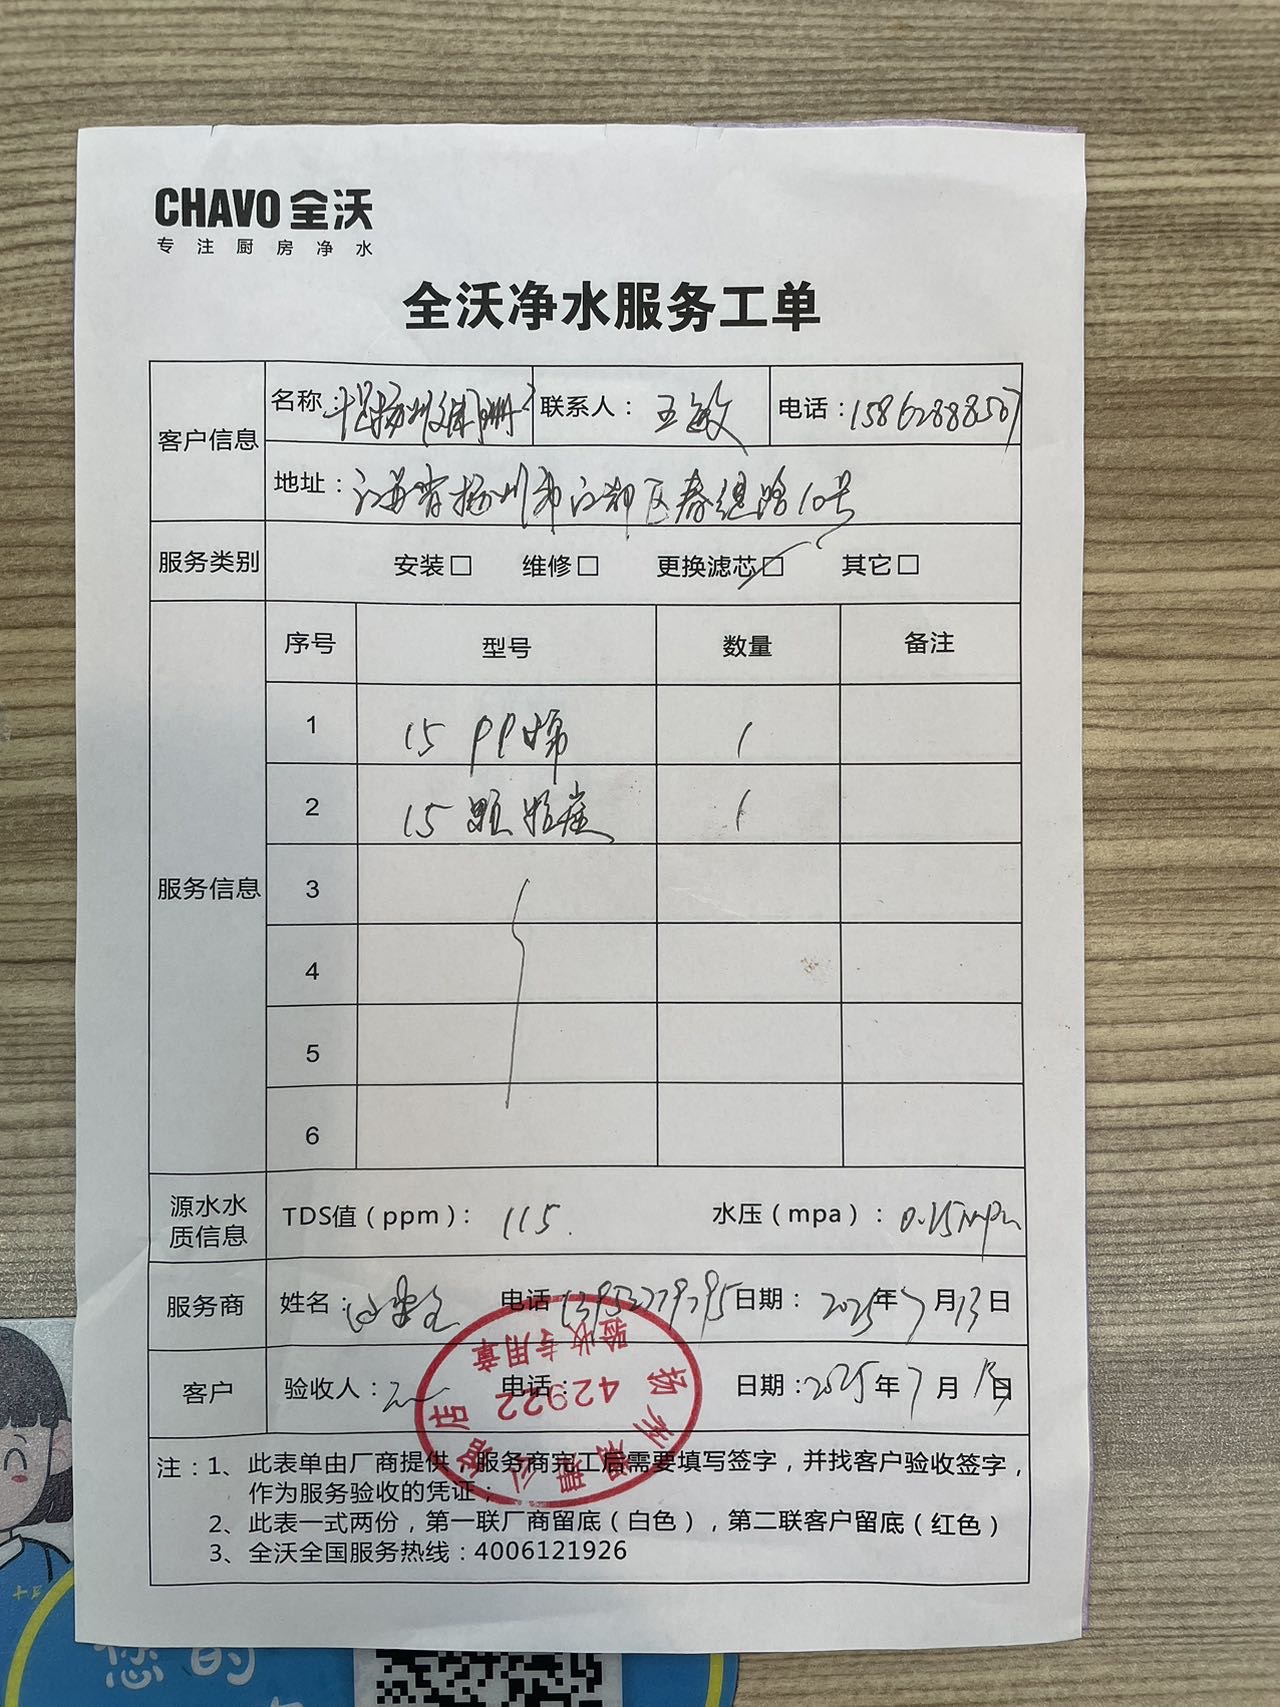 CHAVO 全沃
专注厨房净水
全沃净水服务工单
客户信息
名称：
联系人：王敏
电话：15862888507
地址：江苏省扬州市江都区春缇路10号
服务类别 安装□ 维修□ 更换滤芯☑ 其它□
服务信息
序号 型号 数量 备注
1 15 PP棉 1
2 15 颗粒炭 1
3
4
5
6
源水水质信息
TDS值（ppm）：115. 水压（mpa）：0.25mpa
服务商 姓名： 电话 13952779795 日期：2025年7月13日
客户 验收人：王 电话： 日期：2025年7月13日
扬州 店
42922
验收专用章
注：1、此表单由厂商提供，服务商完工后需要填写签字，并找客户验收签字，
作为服务验收的凭证；
2、此表一式两份，第一联厂商留底（白色），第二联客户留底（红色）
3、全沃全国服务热线：4006121926
您的